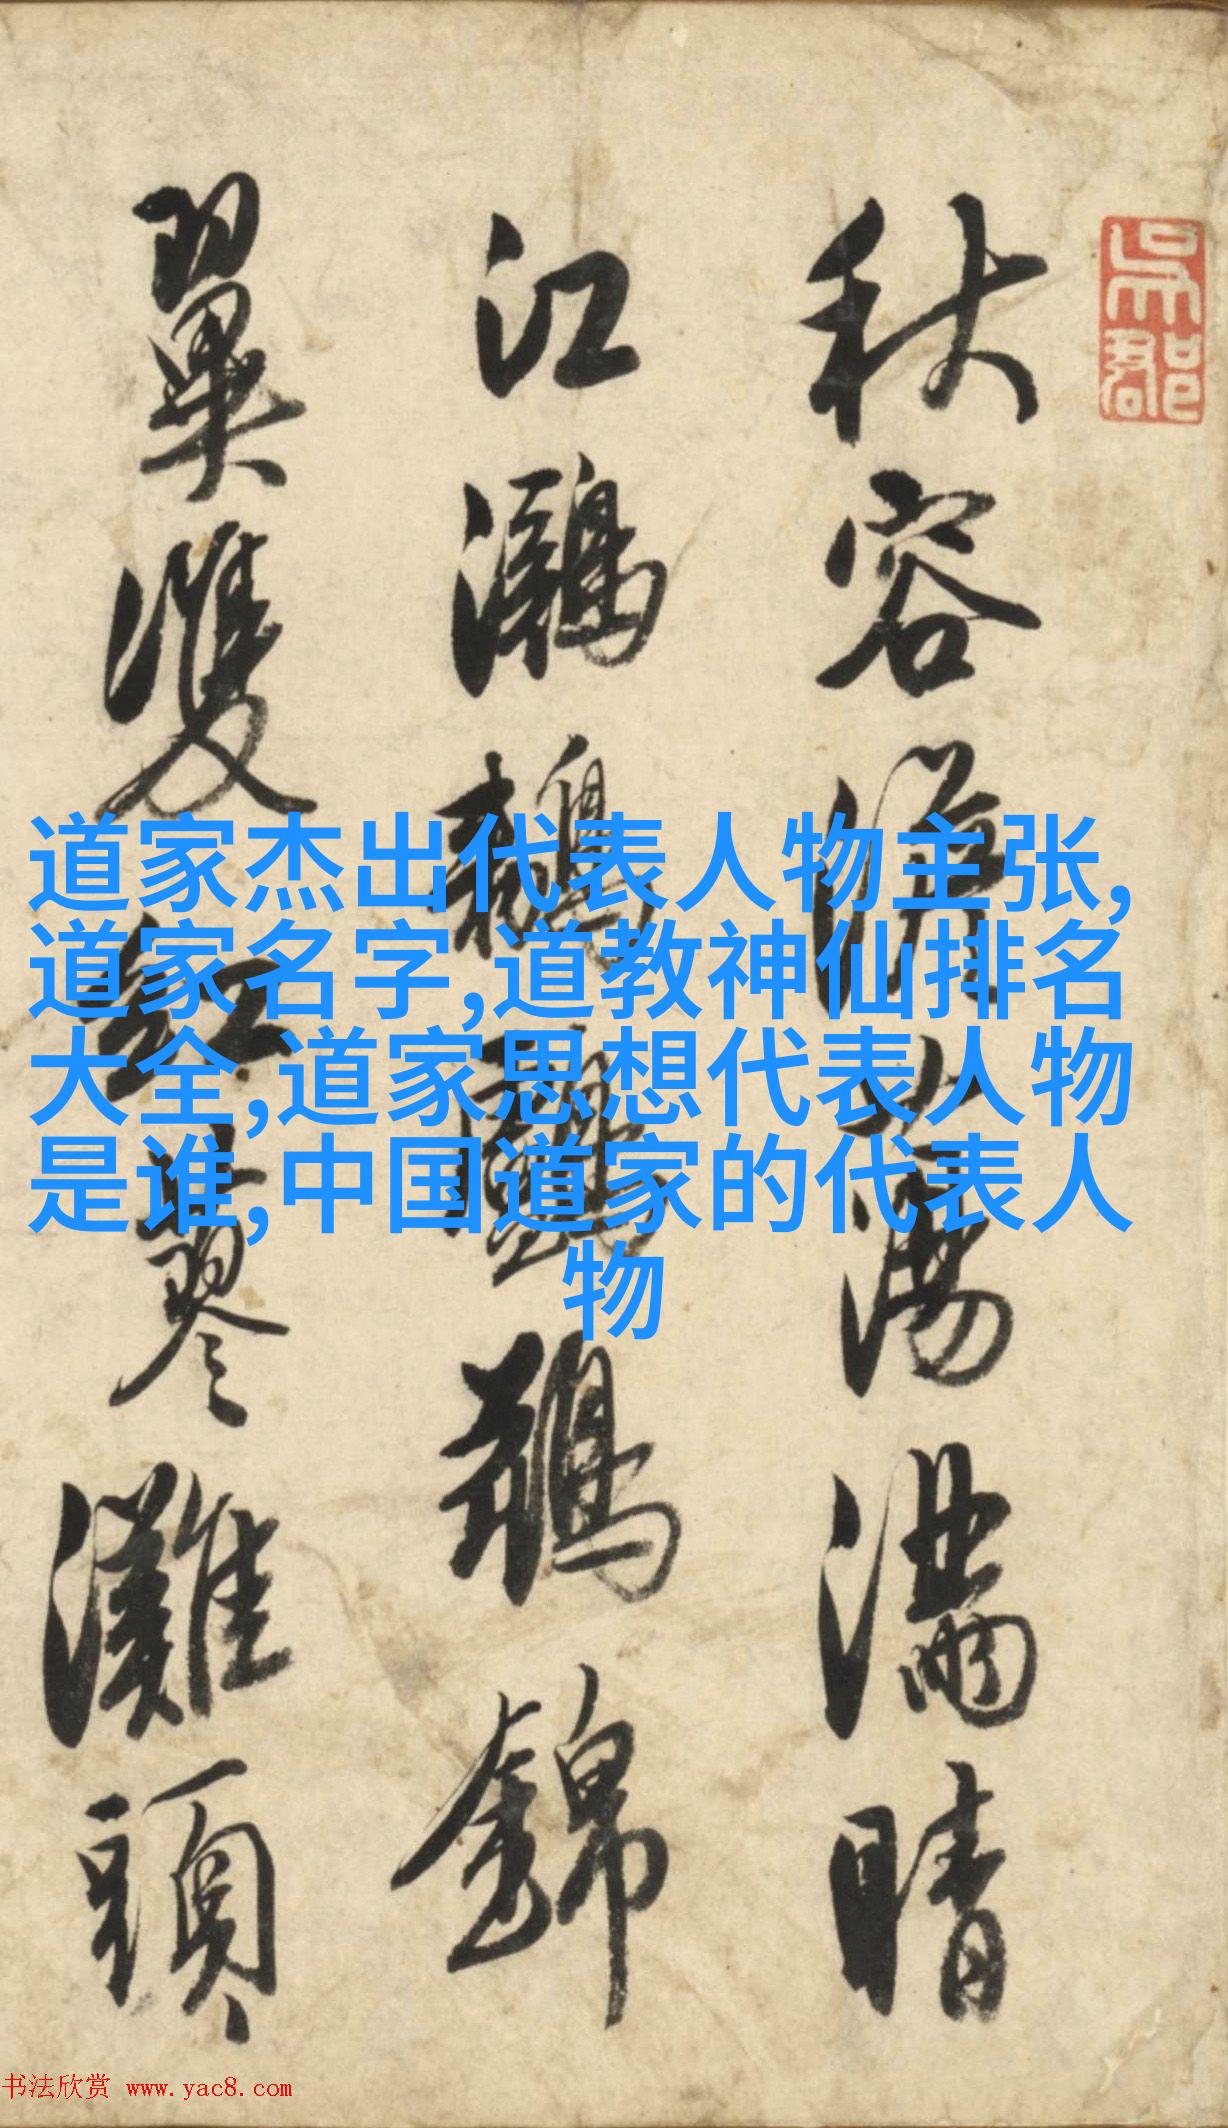 吳郡
秋容蕩滿晴
江鸂鶒鸊鵜錦
翼雙紅蓼灘頭
道家杰出代表人物主张,
道家名字,道教神仙排名
大全,道家思想代表人物
是谁,中国道家的代表人
物
书法欣赏 www.yac8.com